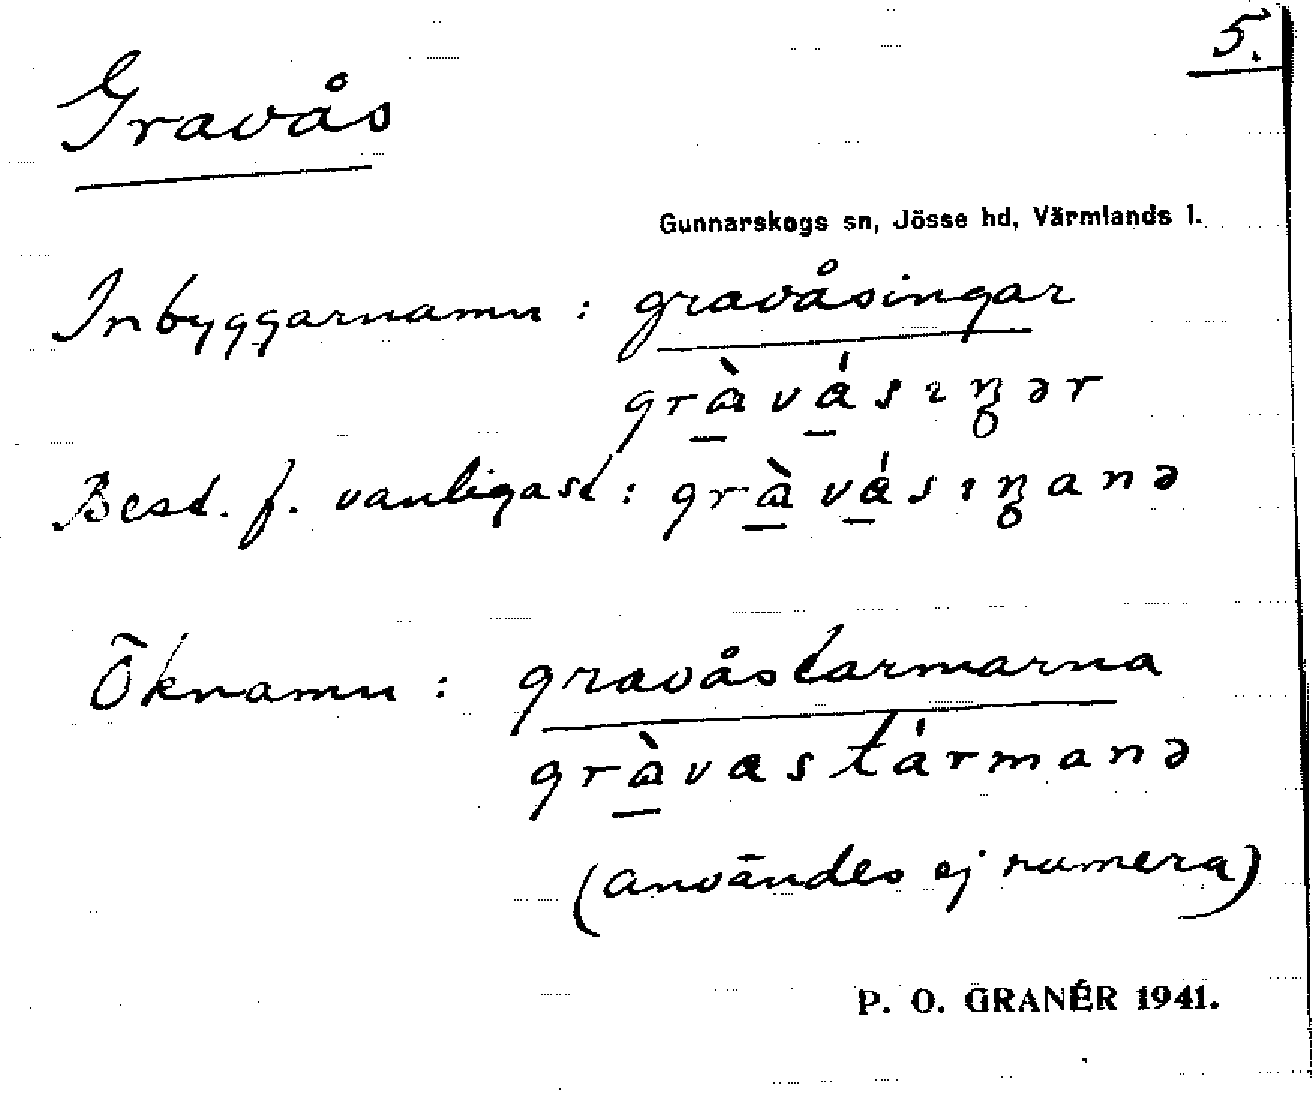 5.
Gravås
Gunnarskogs sn, Jösse hd, Värmlands l.
Inbyggarnamn : gravåsingar
gràvásıŋər
Best. f. vanligast : gràvásıŋanə
Öknamn : gravåstarmarna
gràvastármanə
(användes ej numera)
P. O. GRANÉR 1941.